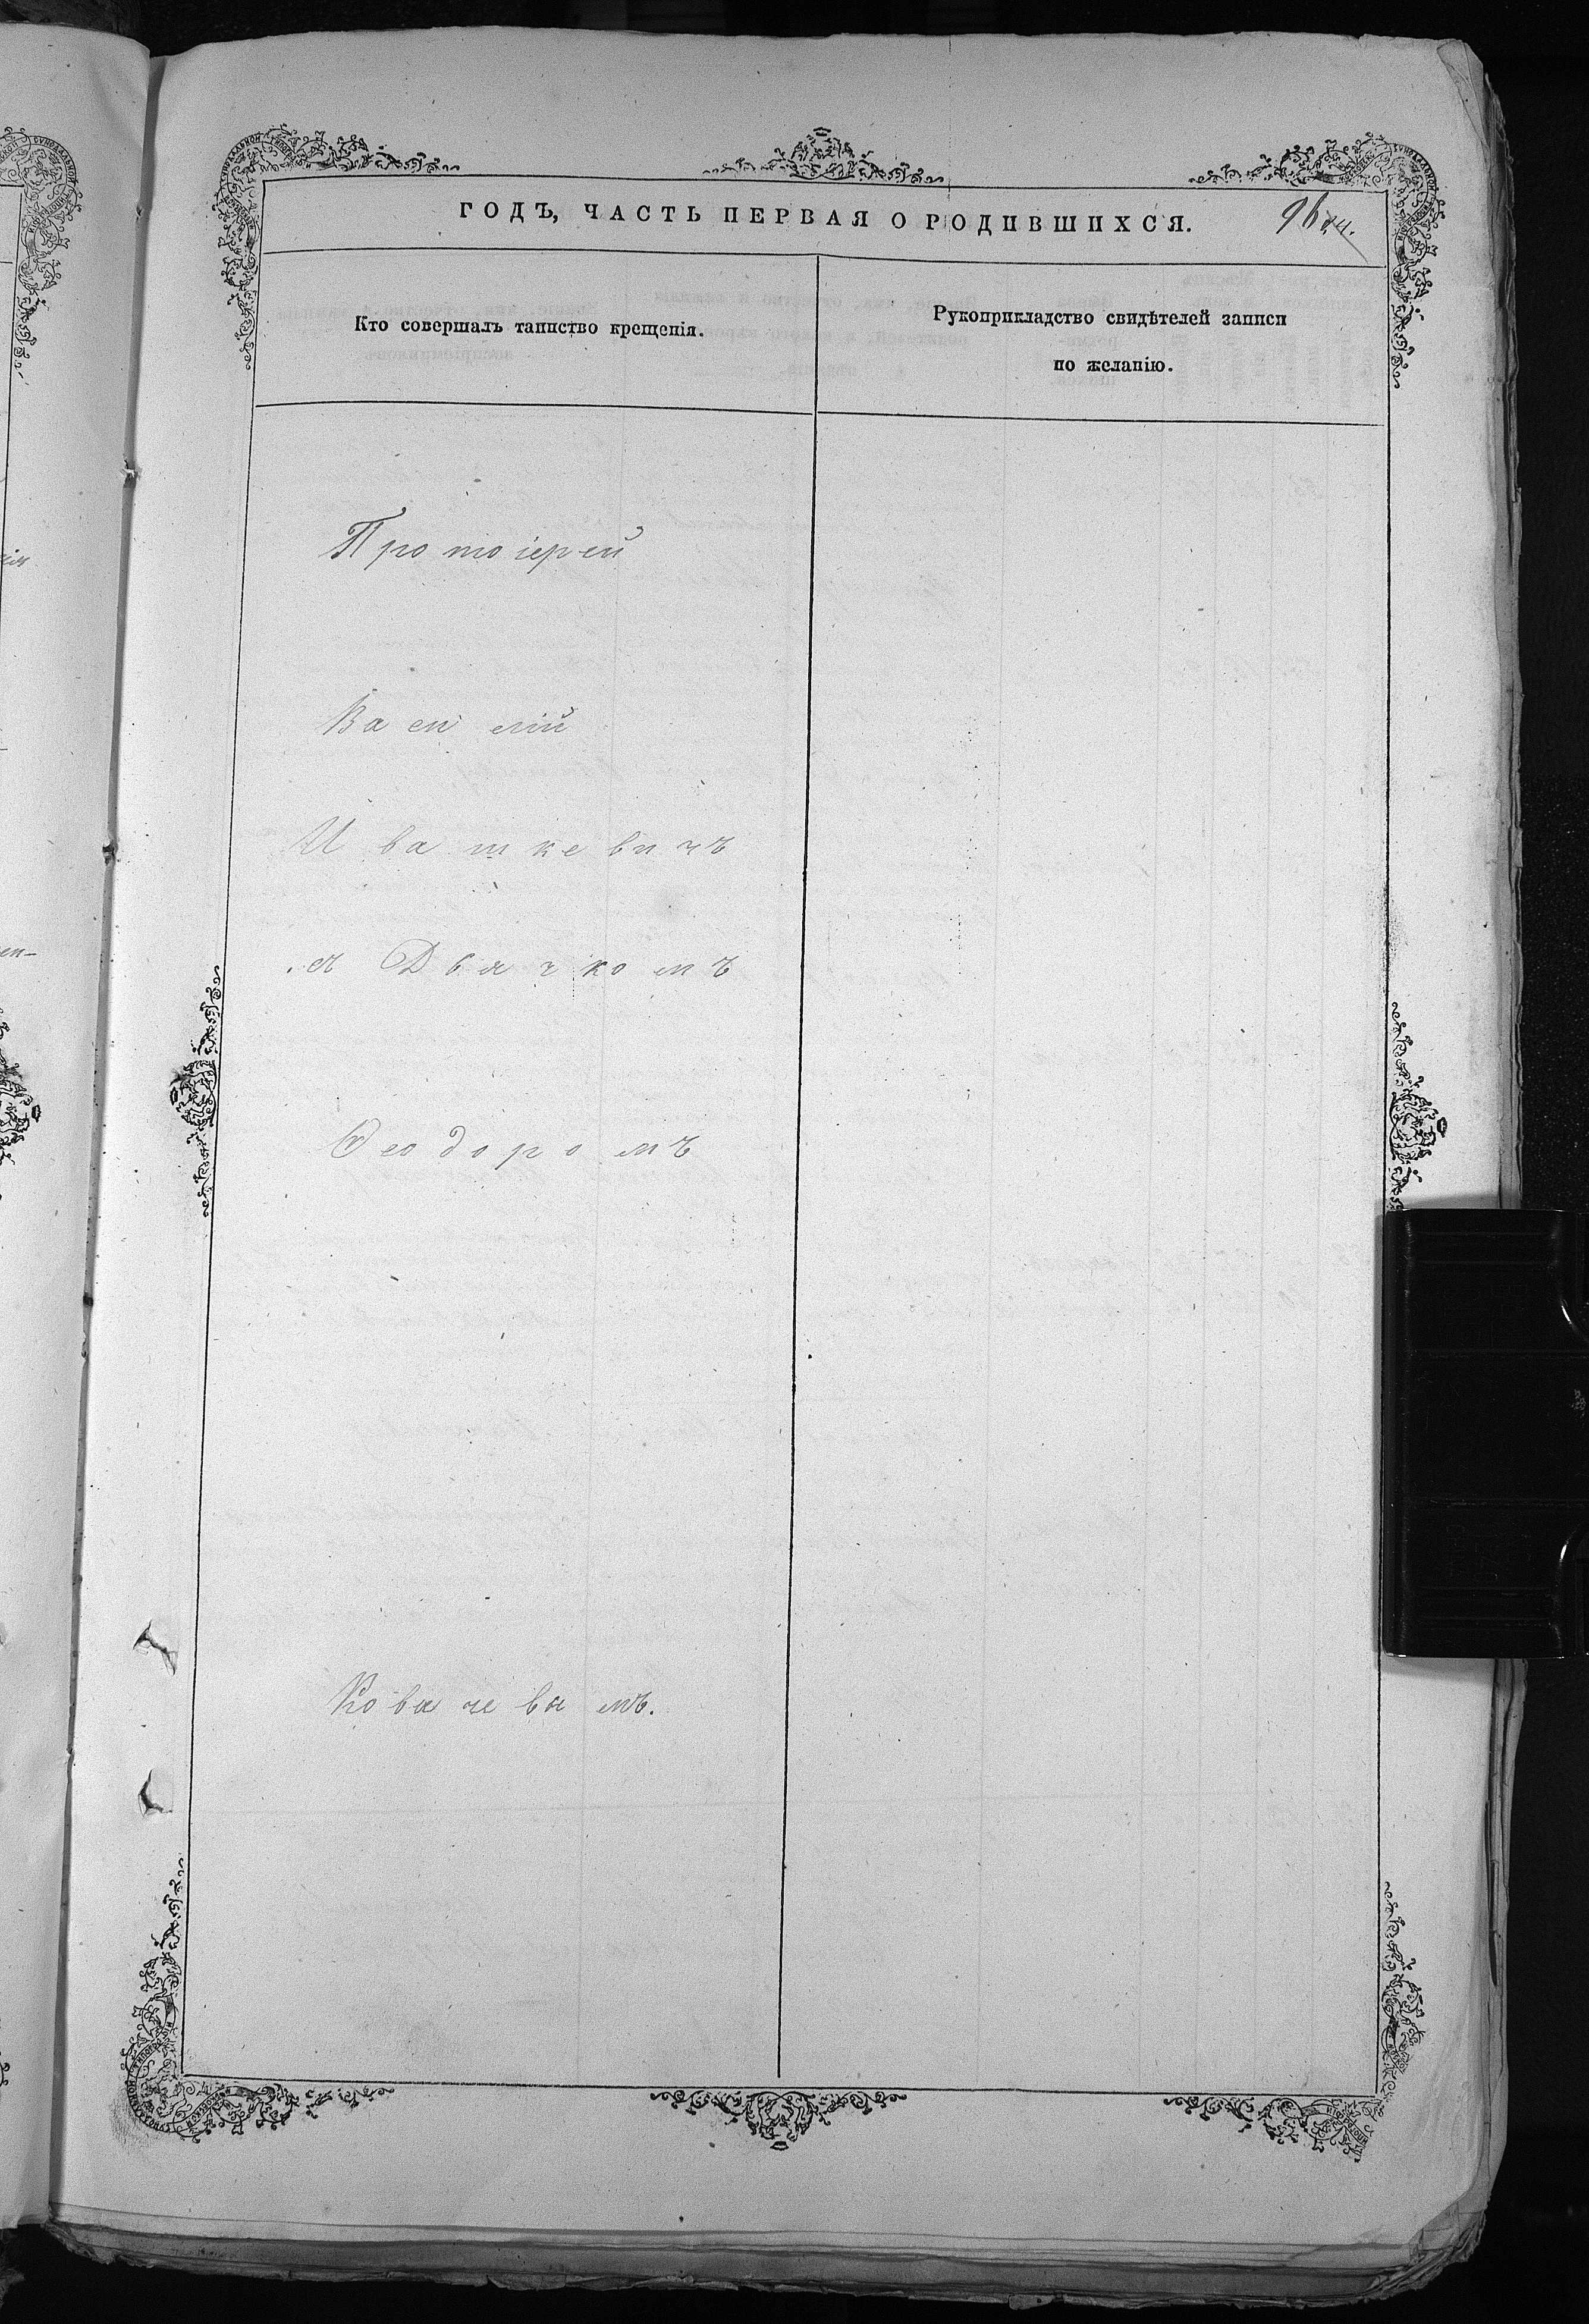 ГОДЪ, ЧАСТЬ ПЕРВАЯ О РОДИВШИХСЯ.
96
Кто совершалъ таинство крещенія.
Рукоприкладство свидѣтелей записи
по желанію.
Протоіерей
Василій
Ивашкевичъ
съ Дьячкомъ
Ѳеодоромъ
Ковачевымъ.